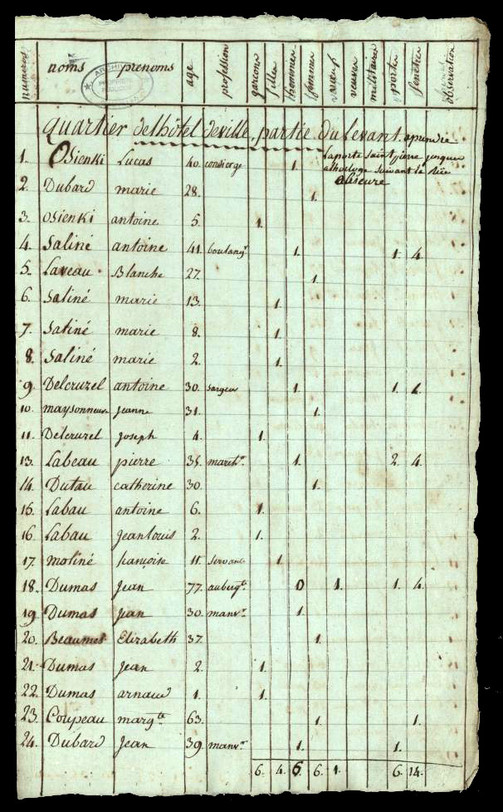 numeros noms prenoms age profession garçons filles hommes femmes veufs veuves militaires portes fenetres observation
quartier de l'hôtel de ville, partie du levant aprendre
laporte saint pierre jusquau
alhorloge suivant la Rüe
obscure
1. Osienki Lucas 40. concierge 1.
2. Dubard marie 28. 1.
3. Osienki antoine 5. 1.
4. Saliné antoine 41. boulangr 1. 1. 4.
5. Laveau Blanche 27. 1.
6. Saliné marie 13. 1.
7. Saliné marie 8. 1.
8. Saliné marie 2. 1.
9. Delcruzel antoine 30. 1. 1.
10. maysonneuve Jeanne 31. 1.
11. Delcruzel joseph 4. 1.
13. Labeau pierre 35. marchd. 1. 2. 4.
14. Dutau catherine 30. 1.
15. Labau antoine 6. 1.
16. Labau jean louis 2. 1.
17. moliné françoise 11. servante 1.
18. Dumas jean 77. aubergte 0 1. 1. 4.
19 Dumas jean 30. manvr. 1.
20. Beaumes Elizabeth 37. 1.
21. Dumas jean 2. 1.
22. Dumas arnaud 1. 1.
23. Coupeau margte 63. 1. 1.
24. Dubard jean 39. manvr. 1. 1.
6. 4. 6. 6. 1. 6. 14.